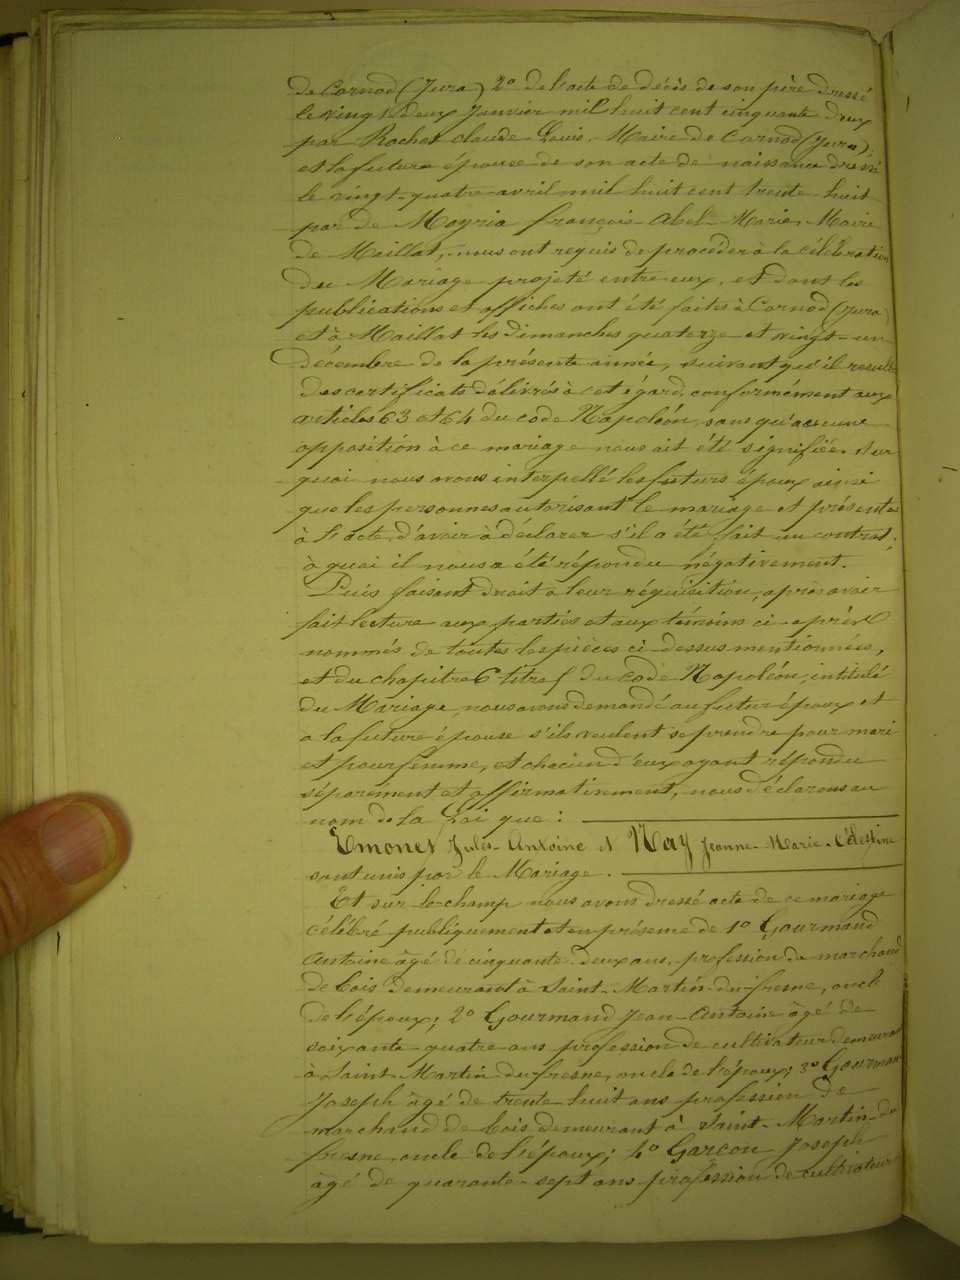 de Cornod (Jura) 2° de l'acte de décès de son père dressé
le vingt deux Janvier mil huit cent cinquante deux
par Rochet Claude-Louis, Maire de Cornod (Jura);
et la future épouse de son acte de naissance dressé
le vingt-quatre avril mil huit cent trente-huit
par de Meyria françois-Abel-Marie, Maire
de Maillat, nous ont requis de procéder à la célébration
du Mariage projeté entre eux, et dont les
publications et affiches ont été faites à Cornod (Jura)
et à Maillat les dimanches quatorze et vingt-un
décembre de la présente année, suivant qu'il resulte
des certificats délivrés à cet égard, conformément aux
articles 63 et 64 du code Napoléon, sans qu'aucune
opposition à ce mariage nous ait été signifiée. Sur
quoi nous avons interpellé les futurs époux ainsi
que les personnes autorisant le mariage et présentes
à l'acte, d'avoir à déclarer s'il a été fait un contrat,
à quoi il nous a été répondu négativement.
Puis faisant droit à leur réquisition, après avoir
fait lecture aux parties et aux témoins ci-après
nommés de toutes les pièces ci-dessus mentionnées,
et du chapitre 6 titre 5 du code Napoléon, intitulé
du Mariage, nous avons demandé au futur époux et
a la future épouse s'ils veulent se prendre pour mari
et pour femme, et chacun d'eux ayant répondu
séparément et affirmativement, nous déclarons au
nom de la Loi que:
Emonet Jules-Antoine et Nay Jeanne-Marie-Célestine
sont unis par le Mariage.
Et sur le champ nous avons dressé acte de ce mariage
célébré publiquement et en présence de 1° Gourmand
Antoine âgé de cinquante-deux ans, profession de marchand
de bois demeurant à Saint-Martin-du-fresne, oncle
de l'époux; 2° Gourmand Jean-Antoine âgé de
soixante-quatre ans profession de cultivateur demeurant
à Saint-Martin du-fresne, oncle de l'époux; 3° Gourmand
Joseph âgé de trente-huit ans profession de
marchand de bois demeurant à Saint-Martin-du
fresne, oncle de l'époux; 4° Garçon Joseph
âgé de quarante-sept ans profession de cultivateur